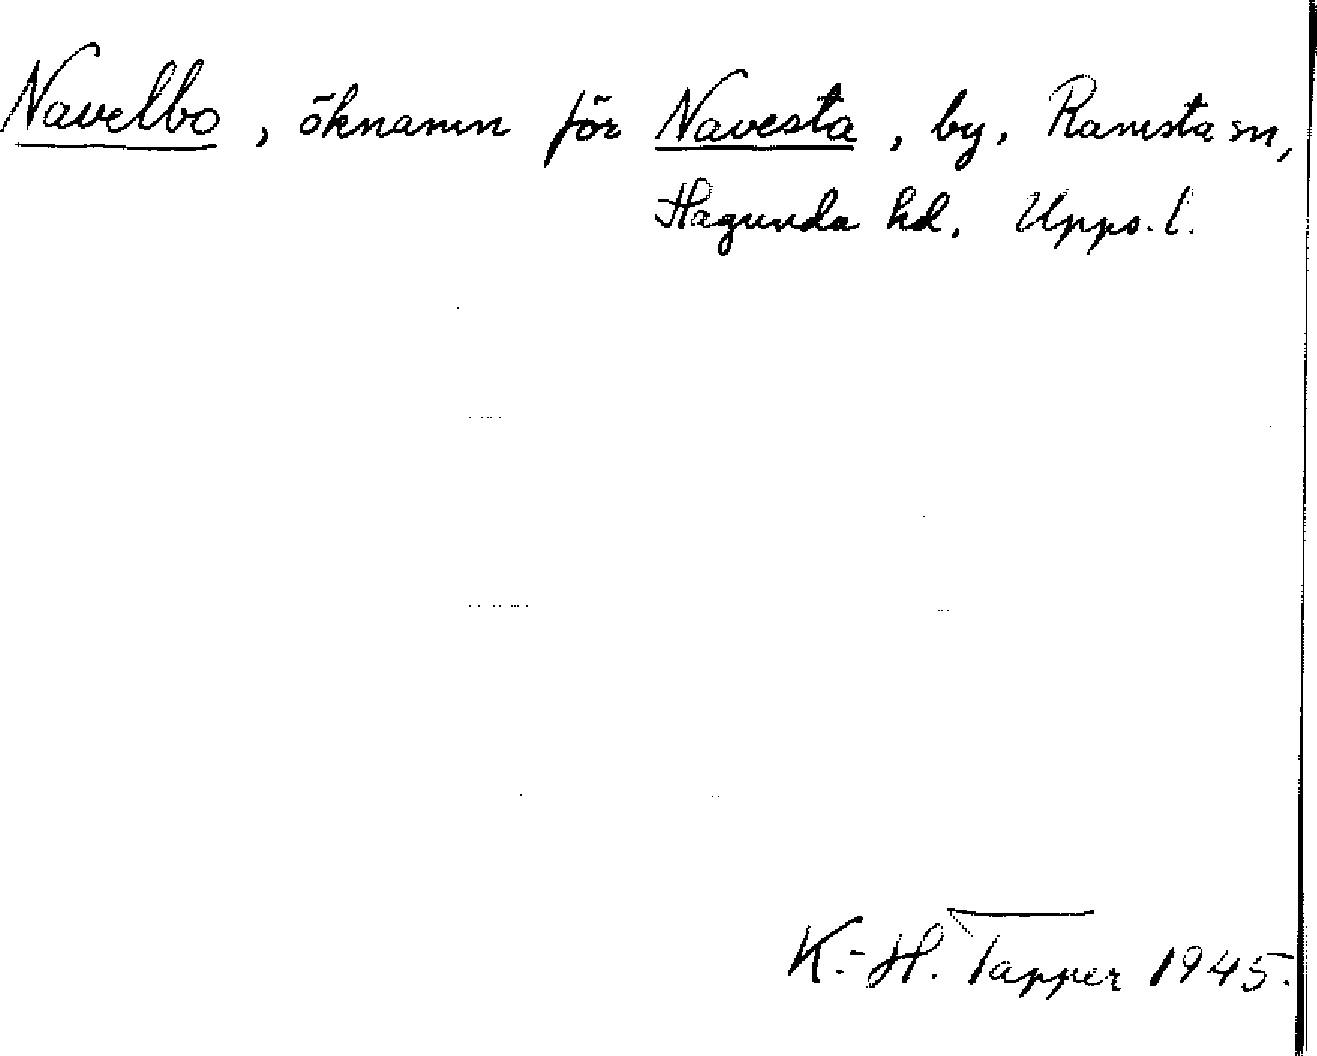 Navelbo, öknamn för Navesta, by, Ramsta sn,
Hagunda hd. Upps. l.
K.-H. Tapper 1945.